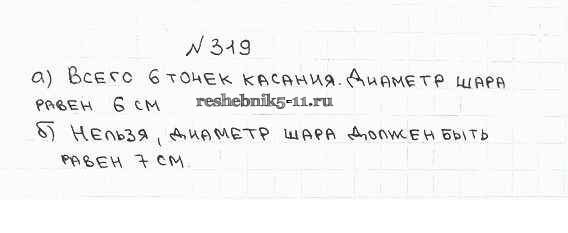 № 319
а) Всего 6 точек касания. Диаметр шара
равен 6 см
reshebnik5-11.ru
б) Нельзя, диаметр шара должен быть
равен 7 см.